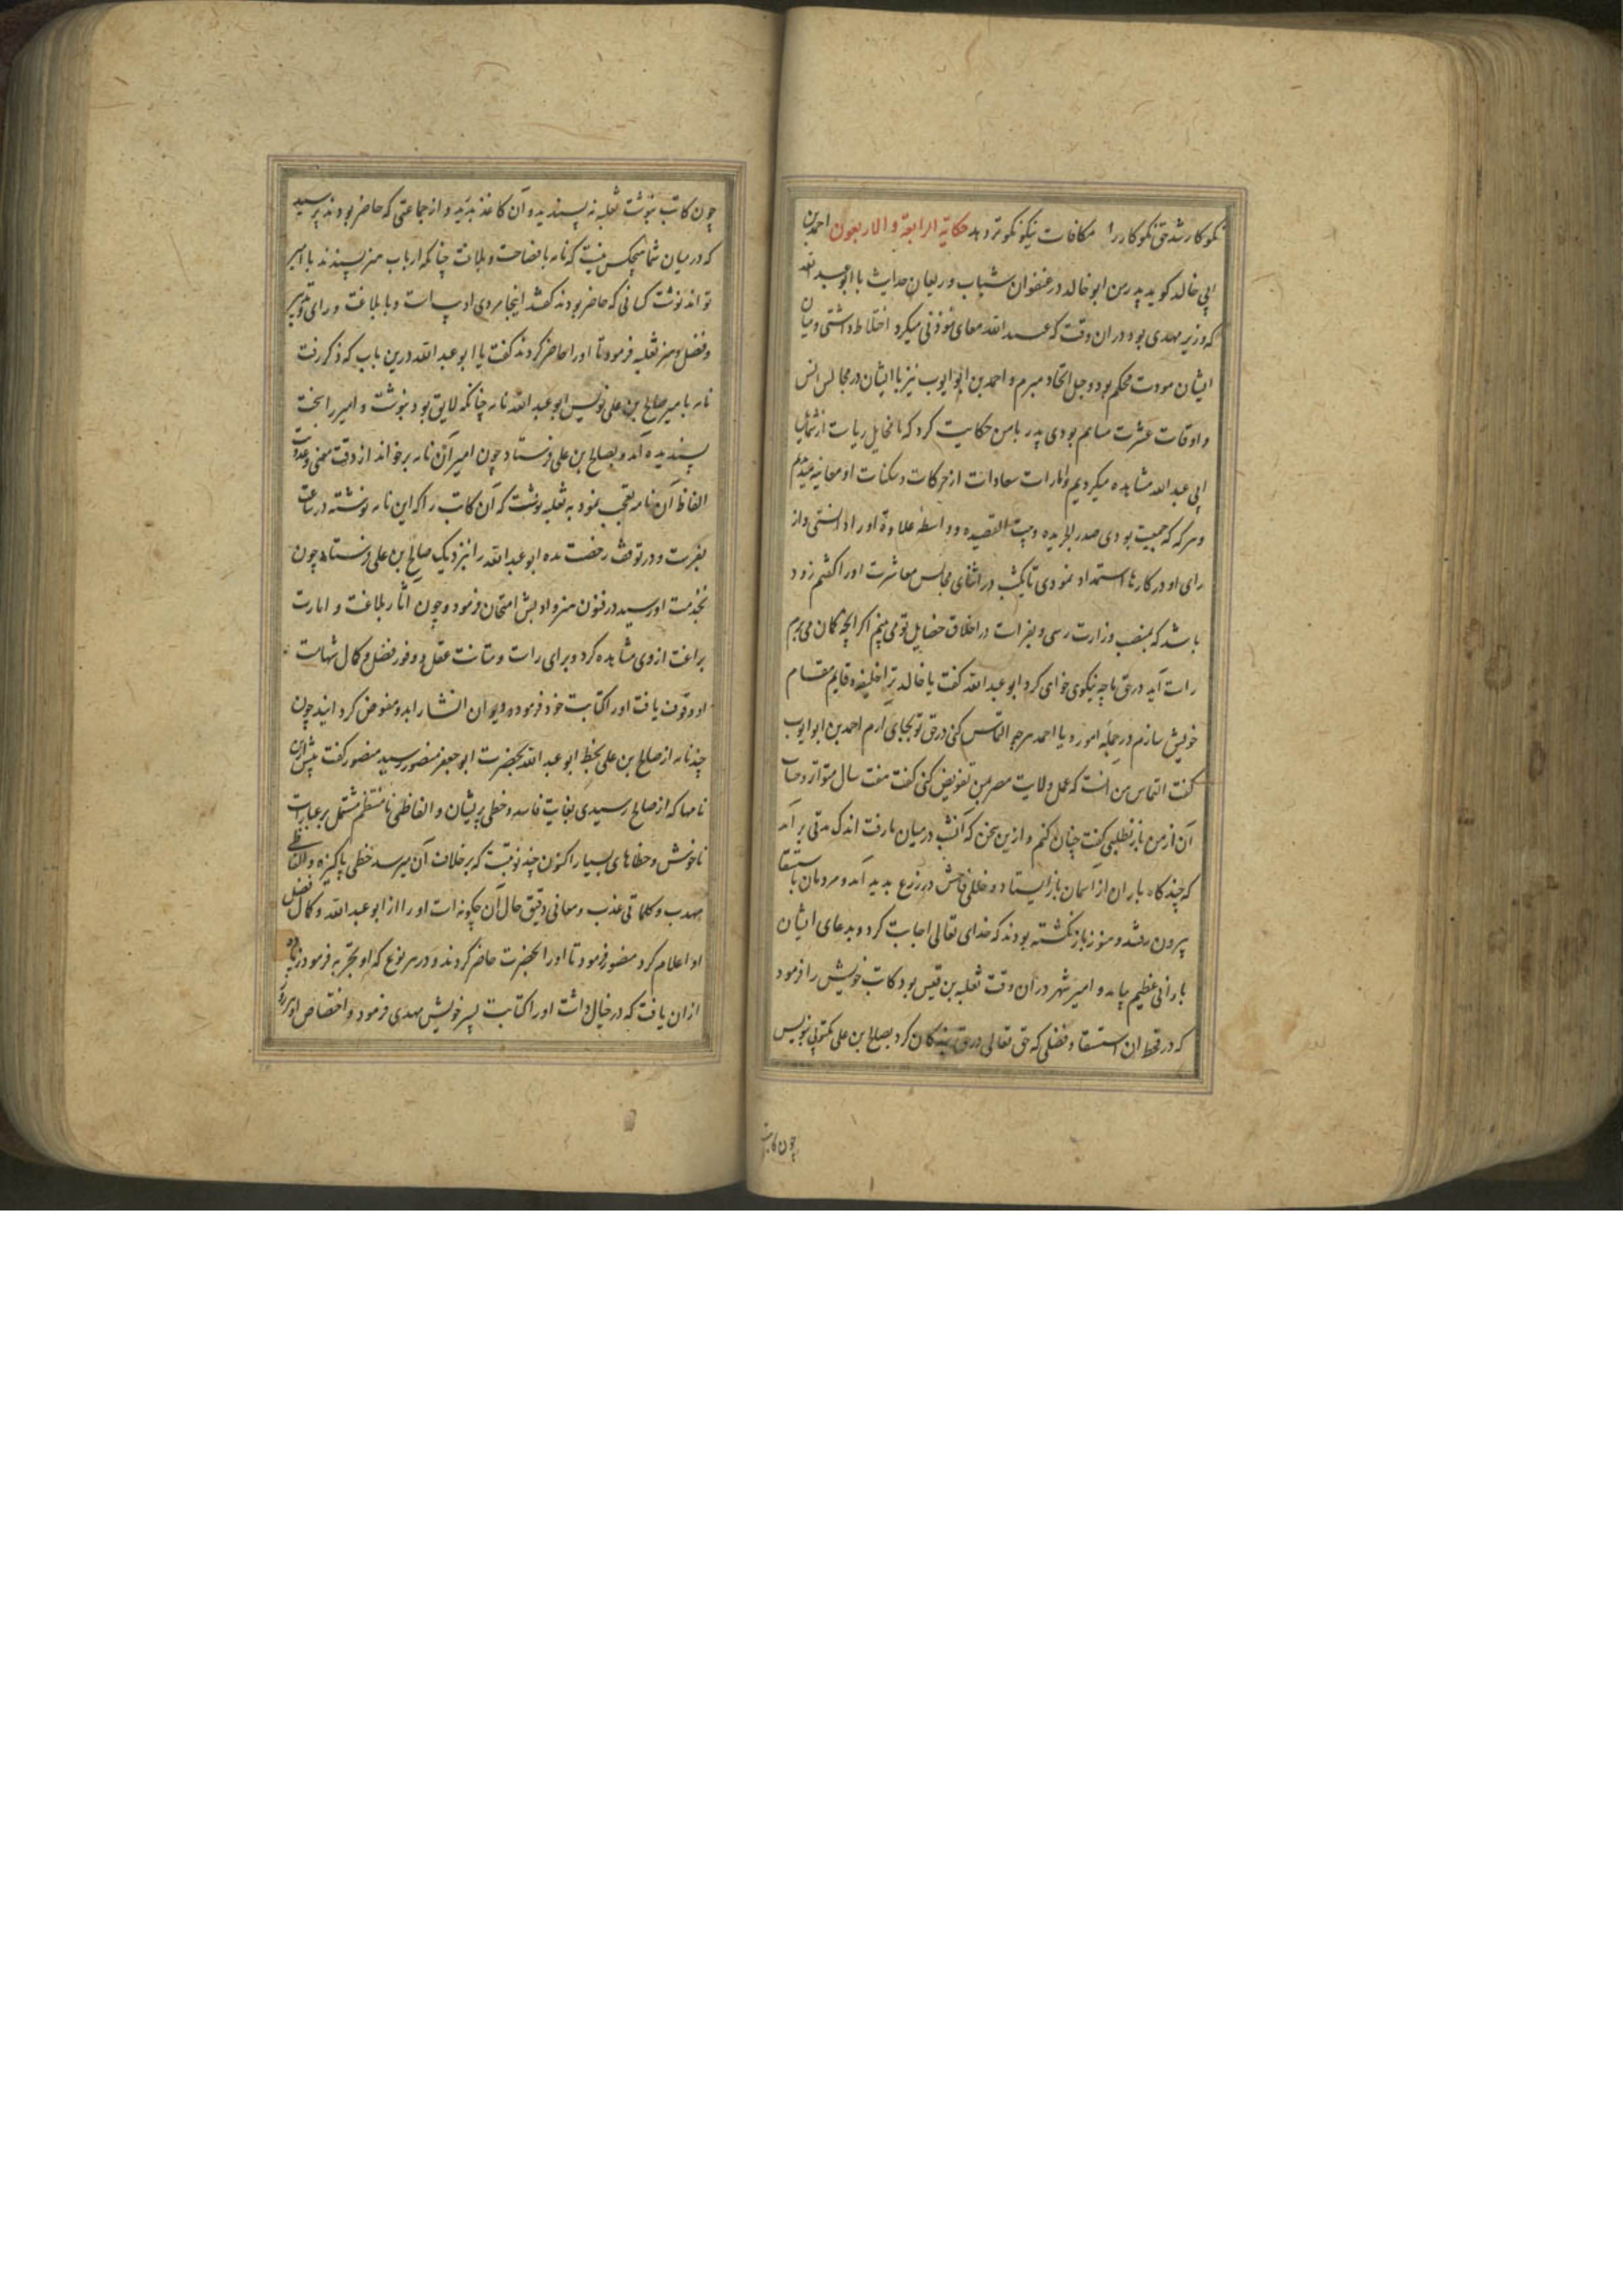 نکوکار شد حق نکوکار را مکافات نیکو نکوتر دهد حکایة الرابعة و الاربعون احمد بن
ابی خالد کوید پدر من ابو خالد در عنفوان شباب و ریعان حداثت با ابو عبد الله
که وزیر مهدی بود در ان وقت که عبد الله معاى موذنی میکرد اختلاط داشتی و میان
ایشان مودت محکم بود و حبل اتحاد مبرم و احمد بن ابو ایوب نیز با ایشان در مجالس انس
و اوقات عشرت مساهم بودی پدر با من حکایت کرد که ما مخایل ریاست از شمایل
ابی عبد الله مشاهده میکردیم و امارات سعادات از حرکات و سکنات او معاینه میدیدیم
و هرکه که جمعیت بودی صدر الجریده و بیت القصیده و واسطه علاوة او را دانستی و از
رای او در کارها استمداد نمودی تا یکشب در اثنای مجالس معاشرت او را کفتم زود
باشد که بمنصب وزارت رسی و بفراست در اخلاق خصایل تو می بینم اکر انچه کمان می برم
راست آید در حق ما چه نیکوی خواهی کرد ابو عبد الله کفت یا خالد ترا خلیفه و قایم مقام
خویش سازم در جمله امور و یا احمد هرچه التماس کنی در حق تو بجای ارم احمد بن ابو ایوب
کفت التماس من انست که عمل ولایت مصر بمن تفویض کنی کفت هفت سال متواتر و حساب
آن از من باز نطلبی کفت چنان کنم و ازین سخن که آنشب در میان ما رفت اندک مدتی برآمد
که چند کاه باران از آسمان باز ایستاد و خللی فاحش در زرع بدید آمد و مردمان باستسقا
بیرون رفتند و هنوز باز نکشته بودند که خدای تعالی اجابت کرد و بدعای ایشان
بارانی عظیم بیامد و امیر شهر در ان وقت ثعلبه بن قیس بود کاتب خویش را فرمود
که در قحط ان استسقا و فضلی که حق تعالی در حق بندکان کرد بصالح بن علی مکتوبی بنویس
چون کاتب
چون کاتب بنوشت ثعلبه نه پسندیده و آن کاغذ بدرید و از جماعتی که حاضر بودند پرسید
که در میان شما هیچکس نیست که نامه با فصاحت و بلاغت چنانکه ارباب هنر پسندند با امیر
تواند نوشت کسانی که حاضر بودند کفتند اینجا مردی ادیب است و با بلاغت و رای و تدبیر
و فضل و هنر ثعلبه فرمود تا او را حاضر کردند کفت یا ابو عبد الله درین باب که ذکر رفت
نامه با میر صالح بن علی نویس ابو عبد الله نامه چنانکه لایق بود بنوشت و امیر را سخت
پسندیده آمد و بصالح بن علی فرستاد چون امیر آن نامه برخواند از دقت معنی و عذوبت
الفاظ آن نامه تعجب نمود به ثعلبه نوشت که آن کاتب را که این نامه نوشته در ساعت
بفرست و در توقف رخصت مده ابو عبد الله را بنزدیک صالح بن علی فرستاد چون
بخدمت او رسید در فنون هنر و ادبش امتحان فرمود و چون اثار بلاغت و امارت
براعت از وی مشاهده کرد و برای راست و متانت عقل و وفور فضل و کمال شهامت
او وقوف یافت او را کتابت خود فرمود و دیوان انشا را بدو مفوض کردانید چون
چند نامه از صالح بن علی بخط ابو عبد الله بحضرت ابو جعفر منصور رسید منصور کفت پیش ازین
نامها که از صالح رسیدی بغایت فاسد و خطی پریشان و الفاظی نامنتظم مشتمل بر عبارات
ناخوش و خطاهای بسیار اکنون چند نوبتست که بر خلاف آن میرسد خطی پاکیزه و الفاظی
مهذب و کلماتی عذب و معانی دقیق حال آن چکونه است او را از ابو عبد الله و کمال فضل
او اعلام کرد منصور فرمود تا او را بحضرت حاضر کردند و در هر نوع که او تجربه فرمود زیاده
از ان یافت که در خیال داشت او را کتابت پسر خویش مهدی فرمود و اختصاص او